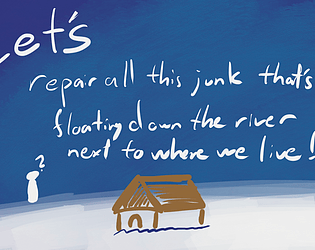 Let's
repair all this junk that's
floating down the river
next to where we live!
?